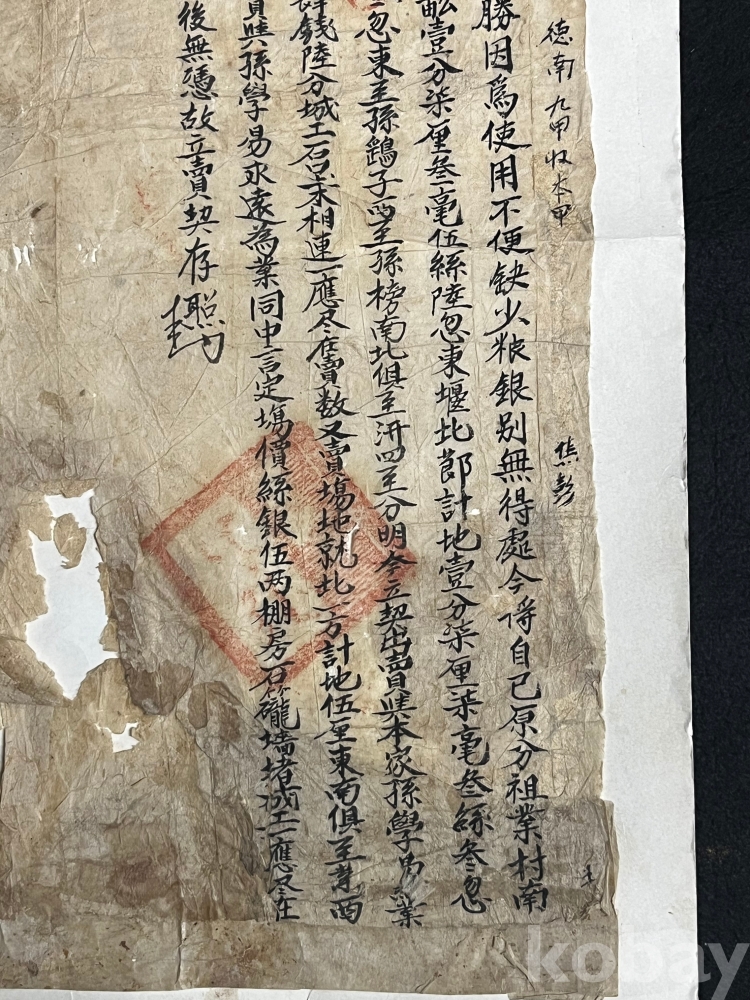 德南九甲收本甲
焦彭
勝因爲使用不便缺少粮銀别無得處今将自己原分祖業村南
畝壹分柒厘叁毫伍絲陸忽東堰北節計地壹分柒厘柒毫叁絲叁忽
忽東至孫鷀子西至孫榜南北俱至汧四至分明今立契出賣與本家孫學易為業
錢陸分城工石木相連一應尽在賣数又賣塲地就北一方計地伍厘東南俱至 西
賣與孫學易永遠為業同中言定塲價絲銀伍两棚房石 牆堵城工一應尽在
後無憑故立賣契存照
kobay